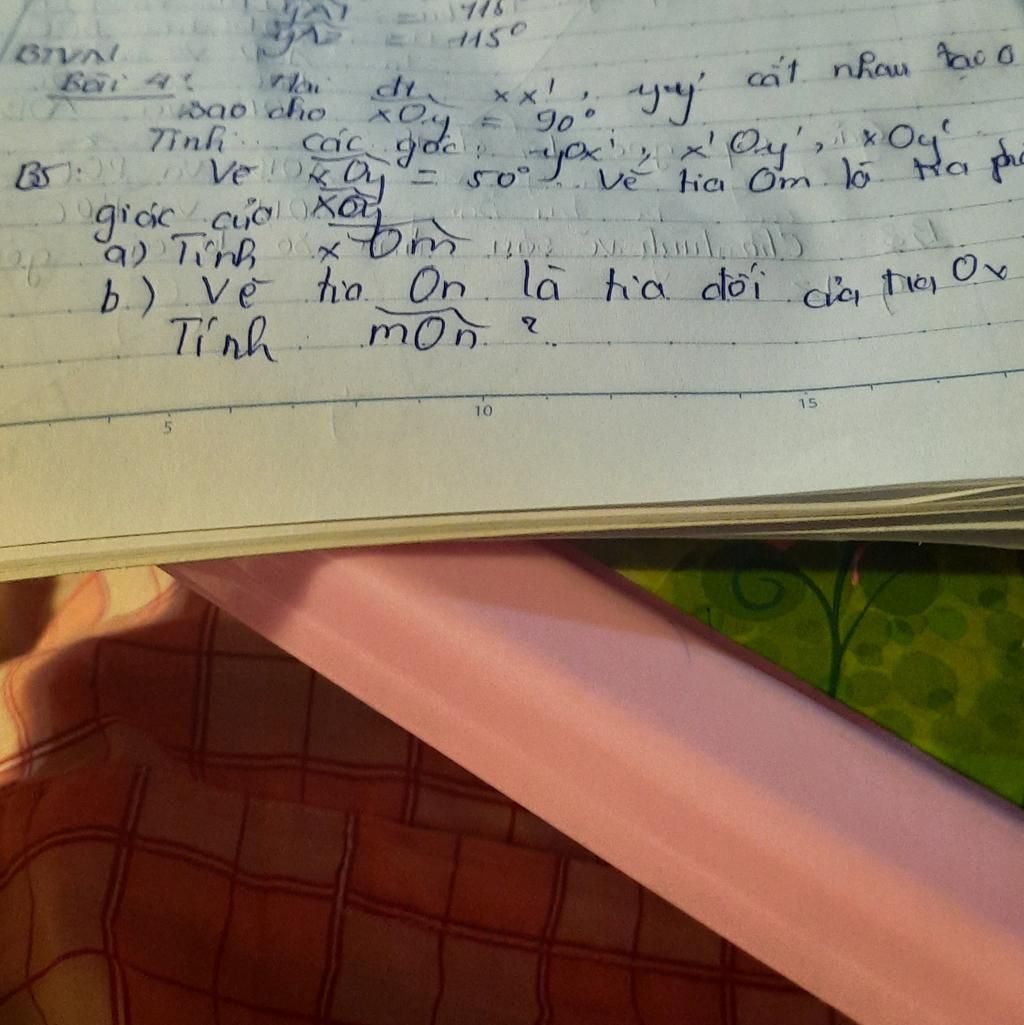 yA1 = 115
yA2 = 115°
BTVN
Bài 4: Hai đt xx', yy' cắt nhau tạo O
sao cho xOy = 90°
Tính các góc: yOx', x'Oy', xOy'
B5: Vẽ xOy = 50°. Vẽ tia Om là tia phâ
giác của xOy
a) Tính xOm
b.) Vẽ tia On là tia đối của tia Ox
Tính mOn ?
5 10 15